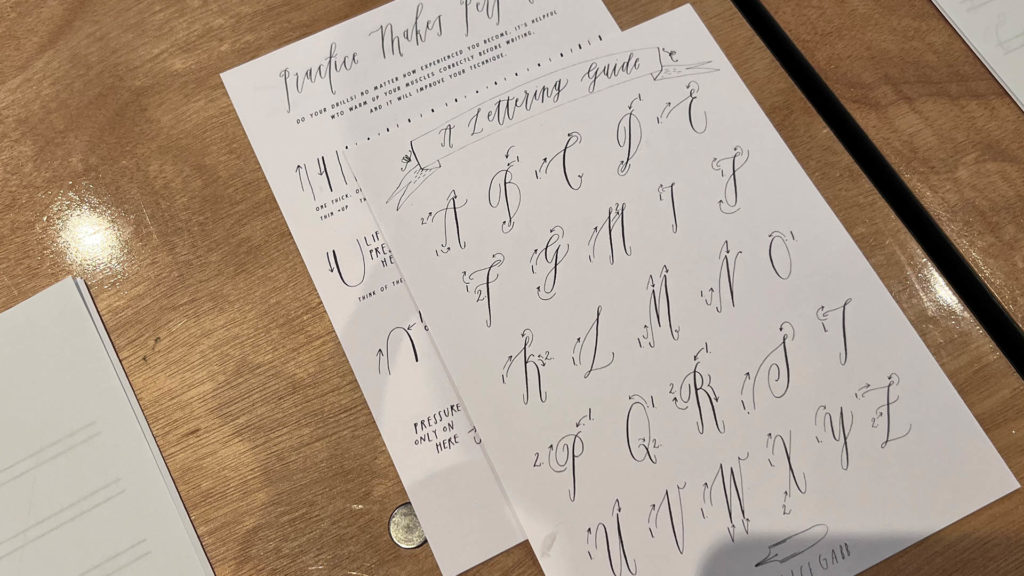 Practice Makes
DO YOUR DRILLS! NO MATTER HOW EXPERIENCED YOU BECOME, IT'S HELPFUL
WTO WARM UP YOUR MUSCLES CORRECTLY BEFORE WRITING,
AND IT WILL IMPROVE YOUR TECHNIQUE.
ONE THICK,
THIN "UP
THINK OF THE
PRESSURE
ONLY ON
HERE
A Lettering Guide
A B C D E
F G H I J
K L M N O
P Q R S T
U V W X Y Z
GABB